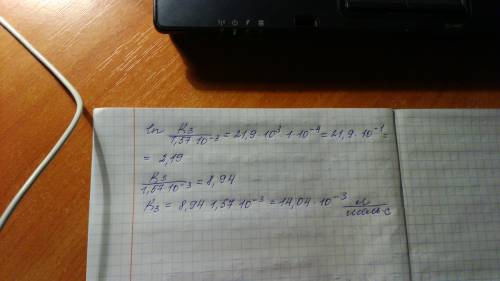 ln K₃/1,57·10⁻³ = 21,9·10³·1·10⁻⁴ = 21,9·10⁻¹ =
= 2,19
K₃/1,57·10⁻³ = 8,94
K₃ = 8,94·1,57·10⁻³ = 14,04·10⁻³ л/моль·с